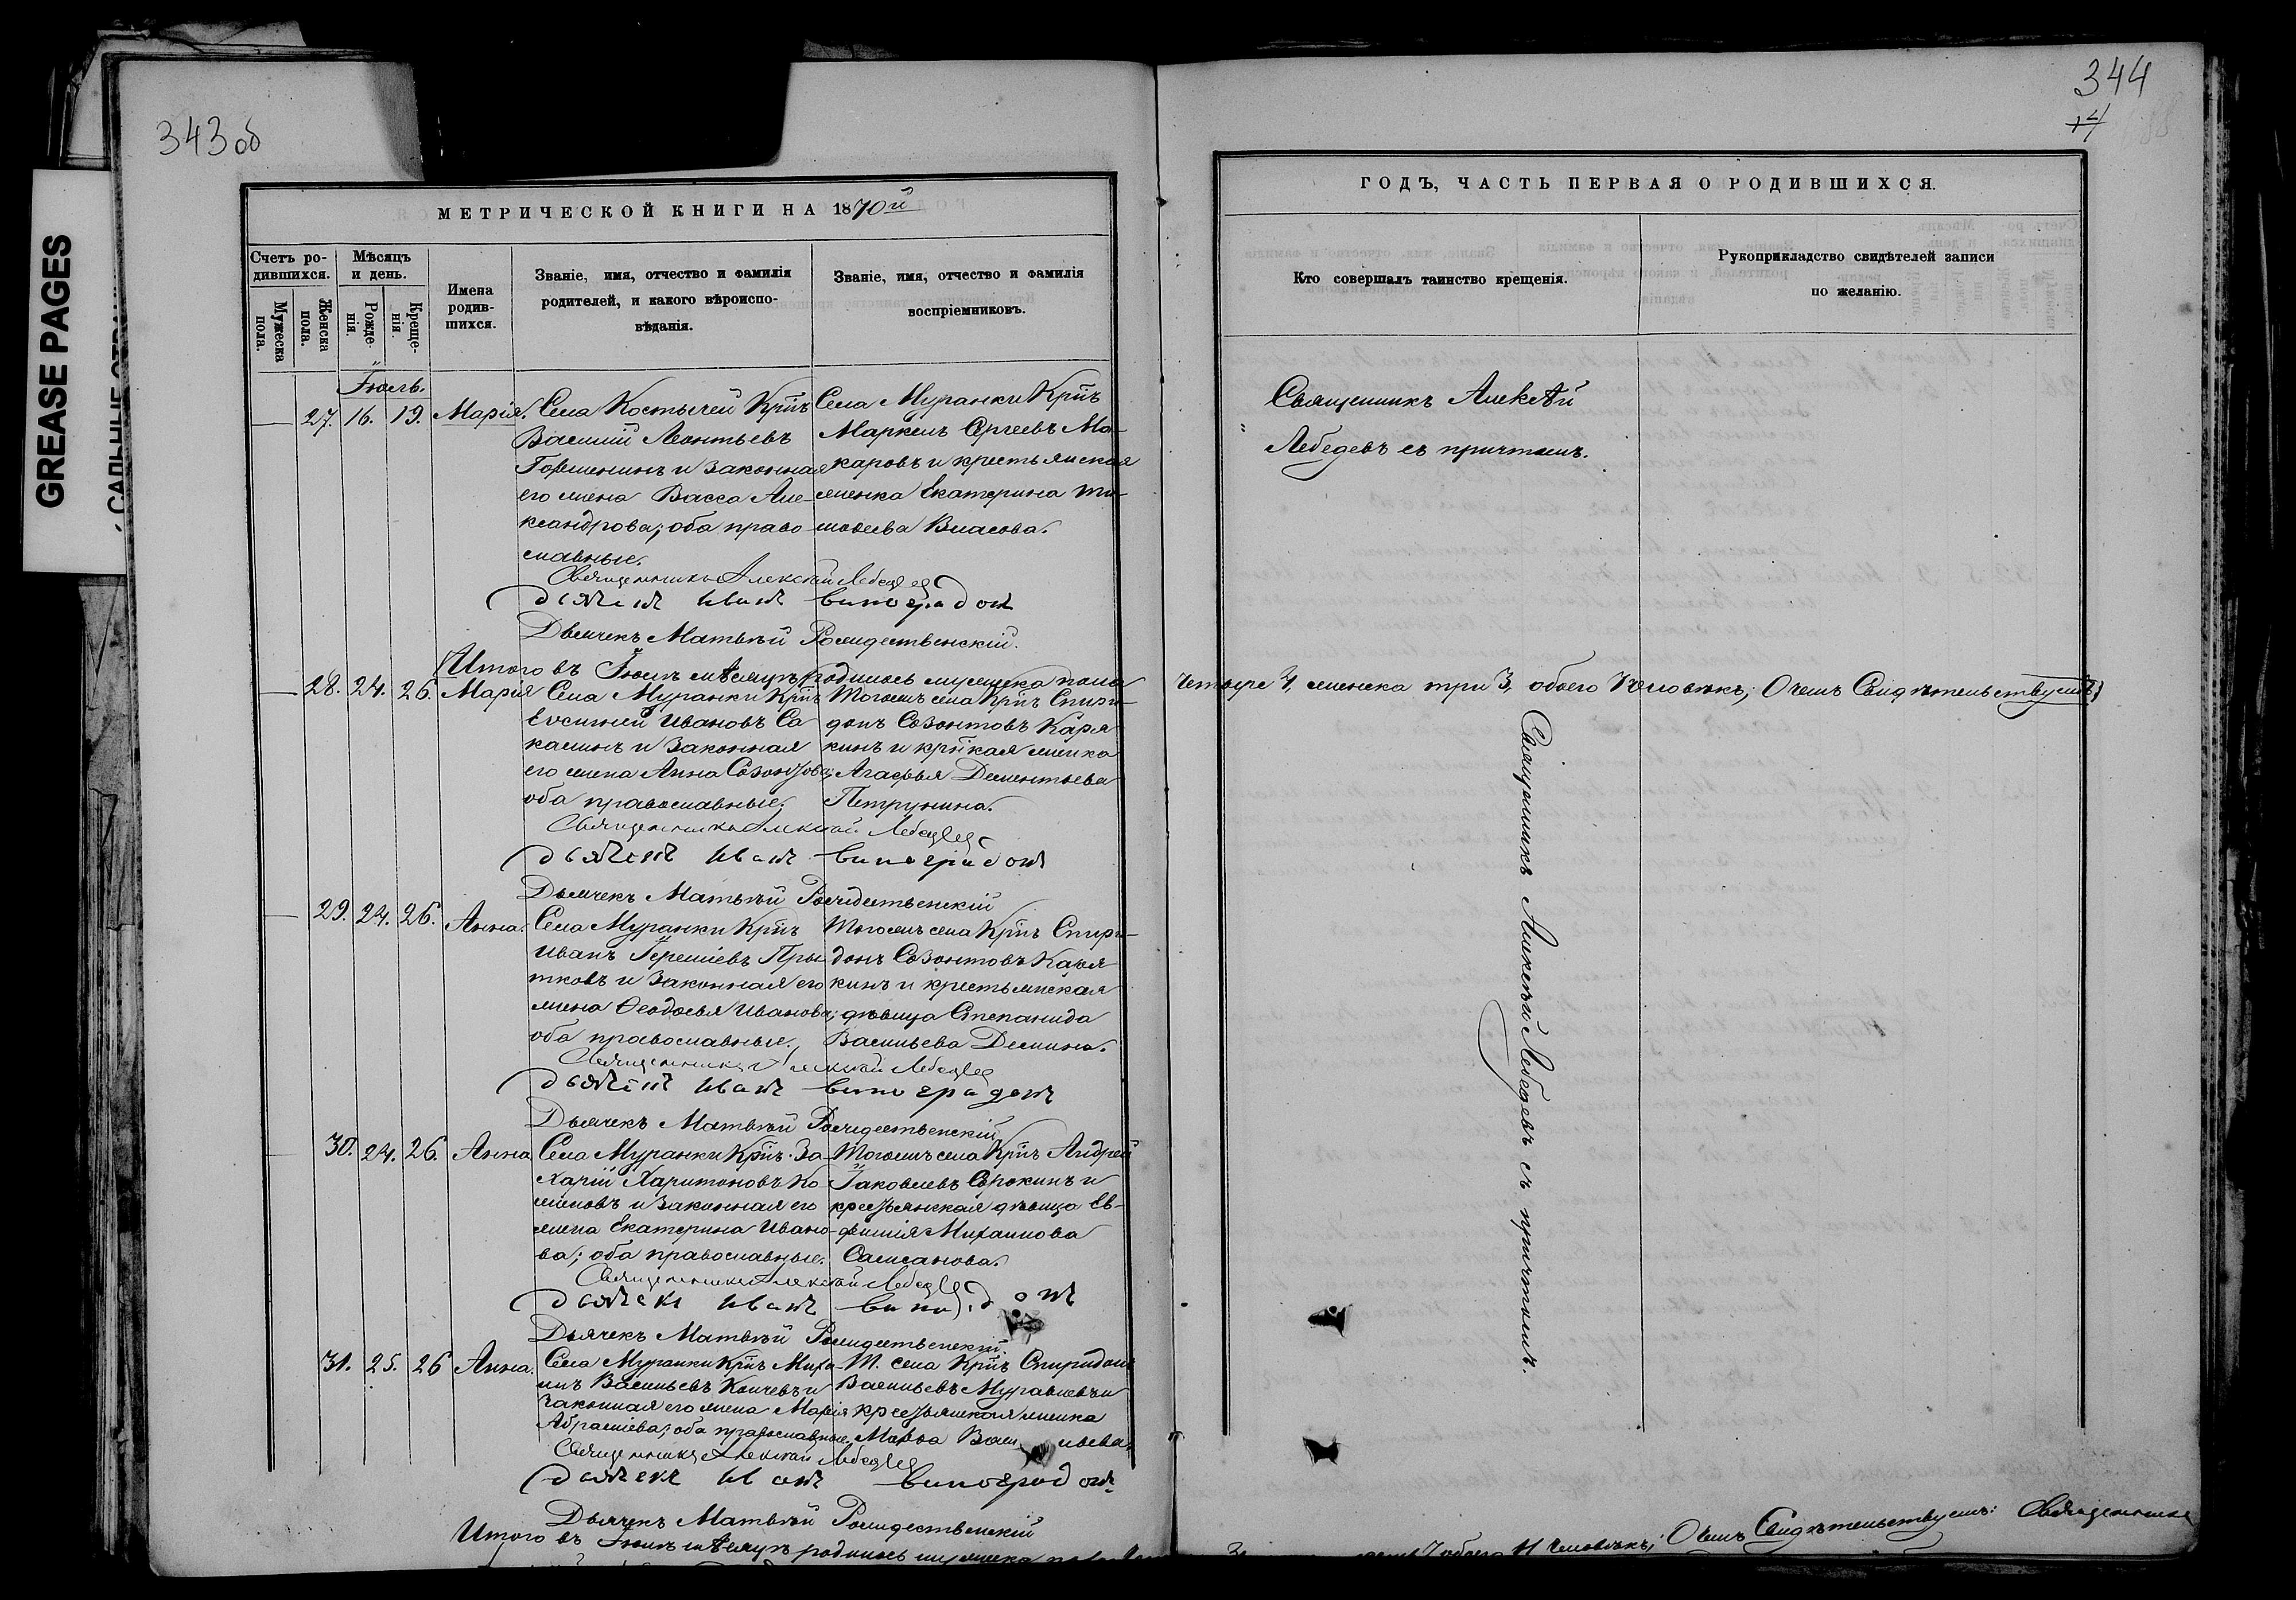 343 об
344
14
GREASE PAGES
МЕТРИЧЕСКОЙ КНИГИ НА 1870й
Счетъ ро-
дившихся.
Мѣсяцъ
и день.
Мужеска
пола.
Женска
пола.
Рожде-
нія.
Креще-
нія.
Имена
родив-
шихся.
Званіе, имя, отчество и фамилія
родителей, и какого вѣроиспо-
вѣданія.
Званіе, имя, отчество и фамилія
воспріемниковъ.
Іюль.
27. 16. 19. Марія.
Села Костычей Крⷭ҇нъ
Василій Леонтьевъ
и законная
его жена Васса Але-
ксандрова; оба право-
славные.
Села Муранки Крⷭ҇нъ
Маркелъ Сергеевъ Ма-
каровъ и крестьянская
женка Екатерина Ти-
мофеева Власова.
Священникъ Алексѣй Лебедевъ
Дьяконъ Иванъ Виноградовъ
Дьячекъ Матвѣй Рождественскій.
(Итого въ Іюнѣ мѣсяцѣ родилось мужеска пола
28. 24. 26. Марія
Села Муранки Крⷭ҇нъ
Евсигней Ивановъ Со-
калинъ и законная
его жена Анна Созонтова;
оба православные.
Тогоже села Крⷭ҇нъ Спири-
донъ Созонтовъ Каря-
кинъ и крⷭ҇ткая женка
Агафья Дементьева
Петрунина.
Священникъ Алексѣй Лебедевъ
Дьяконъ Иванъ Виноградовъ
Дьячекъ Матвѣй Рождественскій
29. 24. 26. Анна.
Села Муранки Крⷭ҇нъ
Иванъ Іереміевъ Пры-
тковъ и законная его
жена Ѳеодосья Иванова;
оба православные.
Тогоже села Крⷭ҇нъ Спири-
донъ Созонтовъ Каря-
кинъ и крестьянская
дѣвица Степанида
Васильева Демина.
Священникъ Алексѣй Лебедевъ
Дьяконъ Иванъ Виноградовъ
Дьячекъ Матвѣй Рождественскій
30. 24. 26. Анна
Села Муранки Крⷭ҇нъ За-
харій Харитоновъ Ко-
и законная его
жена Екатерина Ивано-
ва; оба православные.
Тогоже села Крⷭ҇нъ Андрей
Іаковлевъ Сорокинъ и
крестьянская дѣвица Ев-
фимія Михайлова
Священникъ Алексѣй Лебедевъ
Дьячекъ Иванъ Виноградовъ
Дьячекъ Матвѣй Рождественскій.
31. 25. 26 Анна.
Села Муранки Крⷭ҇нъ Миха-
илъ Васильевъ и
законная его жена Марія
Абраміева; оба православные.
Т. села Крⷭ҇нъ Спиридонъ
Васильевъ Муравлевъ и
крестьянская женка
Марѳа Васильева.
Священникъ Алексѣй Лебедевъ
Дьячекъ Иванъ Виноградовъ.
Дьячекъ Матвѣй Рождественскій
Итого въ Іюлѣ мѣсяцѣ родилось мужеска пола
ГОДЪ, ЧАСТЬ ПЕРВАЯ О РОДИВШИХСЯ.
Кто совершалъ таинство крещенія.
Рукоприкладство свидѣтелей записи
по желанію.
Священникъ Алексѣй
Лебедевъ съ причтомъ.
четыре 4, женска три 3, обоего 7 человѣкъ; О чемъ Свидѣтельствуемъ)
Священникъ Алексѣй Лебедевъ съ причтомъ.
обоего 11 человѣкъ; О чемъ Свидѣтельствуемъ: Священникъ